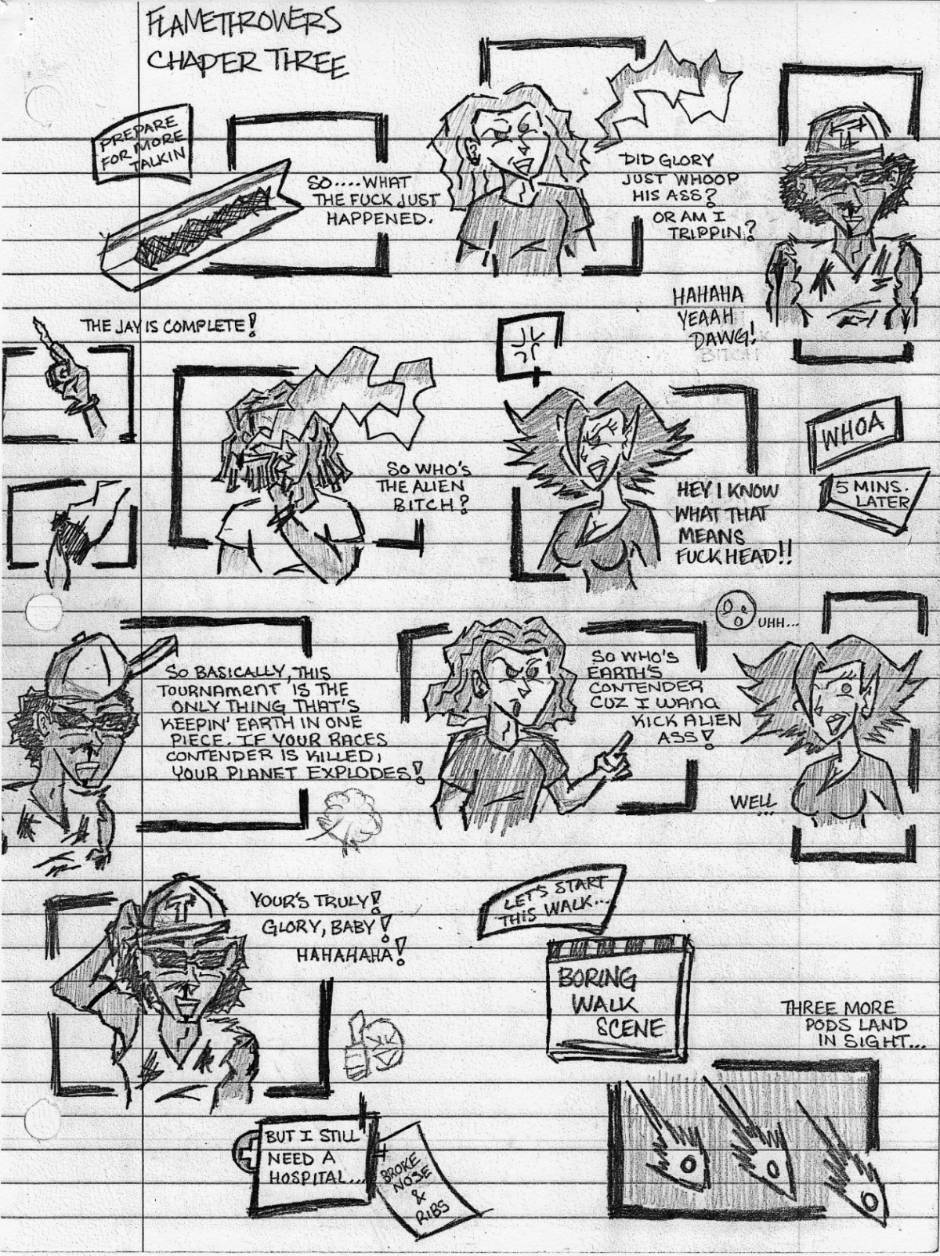 FLAMETHROWERS
CHAPER THREE
PREPARE
FOR MORE
TALKIN
SO....WHAT
THE FUCK JUST
HAPPENED.
DID GLORY
JUST WHOOP
HIS ASS?
OR AM I
TRIPPIN?
T
HAHAHA
YEAAH
DAWG!
BITCH
THE JAY IS COMPLETE!
SO WHO'S
THE ALIEN
BITCH?
HEY I KNOW
WHAT THAT
MEANS
FUCKHEAD!!
WHOA
5 MINS.
LATER
SO BASICALLY, THIS
TOURNAMENT IS THE
ONLY THING THAT'S
KEEPIN' EARTH IN ONE
PIECE. IF YOUR RACES
CONTENDER IS KILLED,
YOUR PLANET EXPLODES!
SO WHO'S
EARTH'S
CONTENDER
CUZ I WANA
KICK ALIEN
ASS!
UHH...
WELL
...
T
YOUR'S TRULY!
GLORY, BABY!
HAHAHAHA!
LET'S START
THIS WALK...
BORING
WALK
SCENE
THREE MORE
PODS LAND
IN SIGHT...
BUT I STILL
NEED A
HOSPITAL...
BROKE
NOSE
&
RIBS